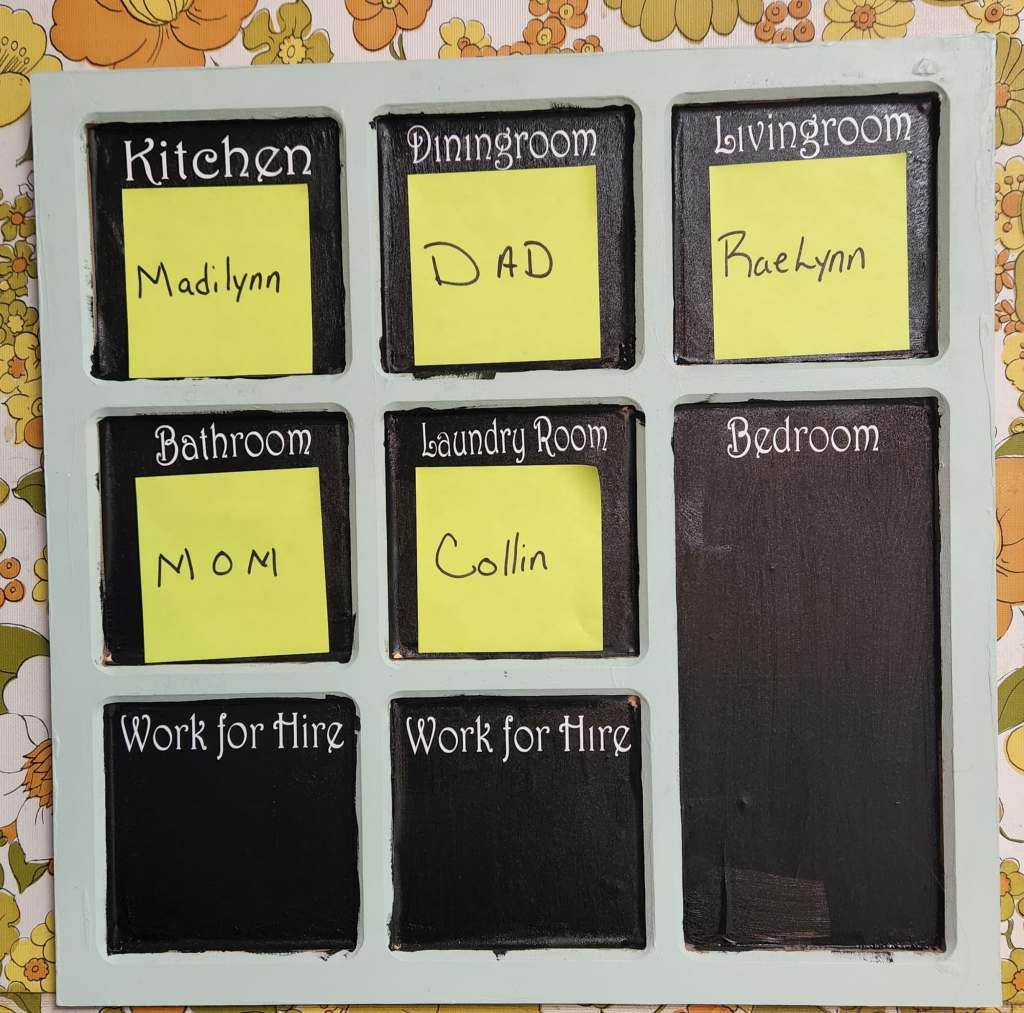 Kitchen
Madilynn
Diningroom
DAD
Livingroom
RaeLynn
Bathroom
MOM
Laundry Room
Collin
Bedroom
Work for Hire
Work for Hire